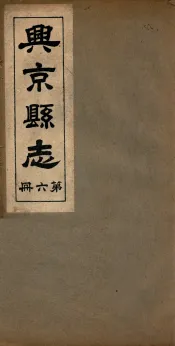 興京縣志
第六冊